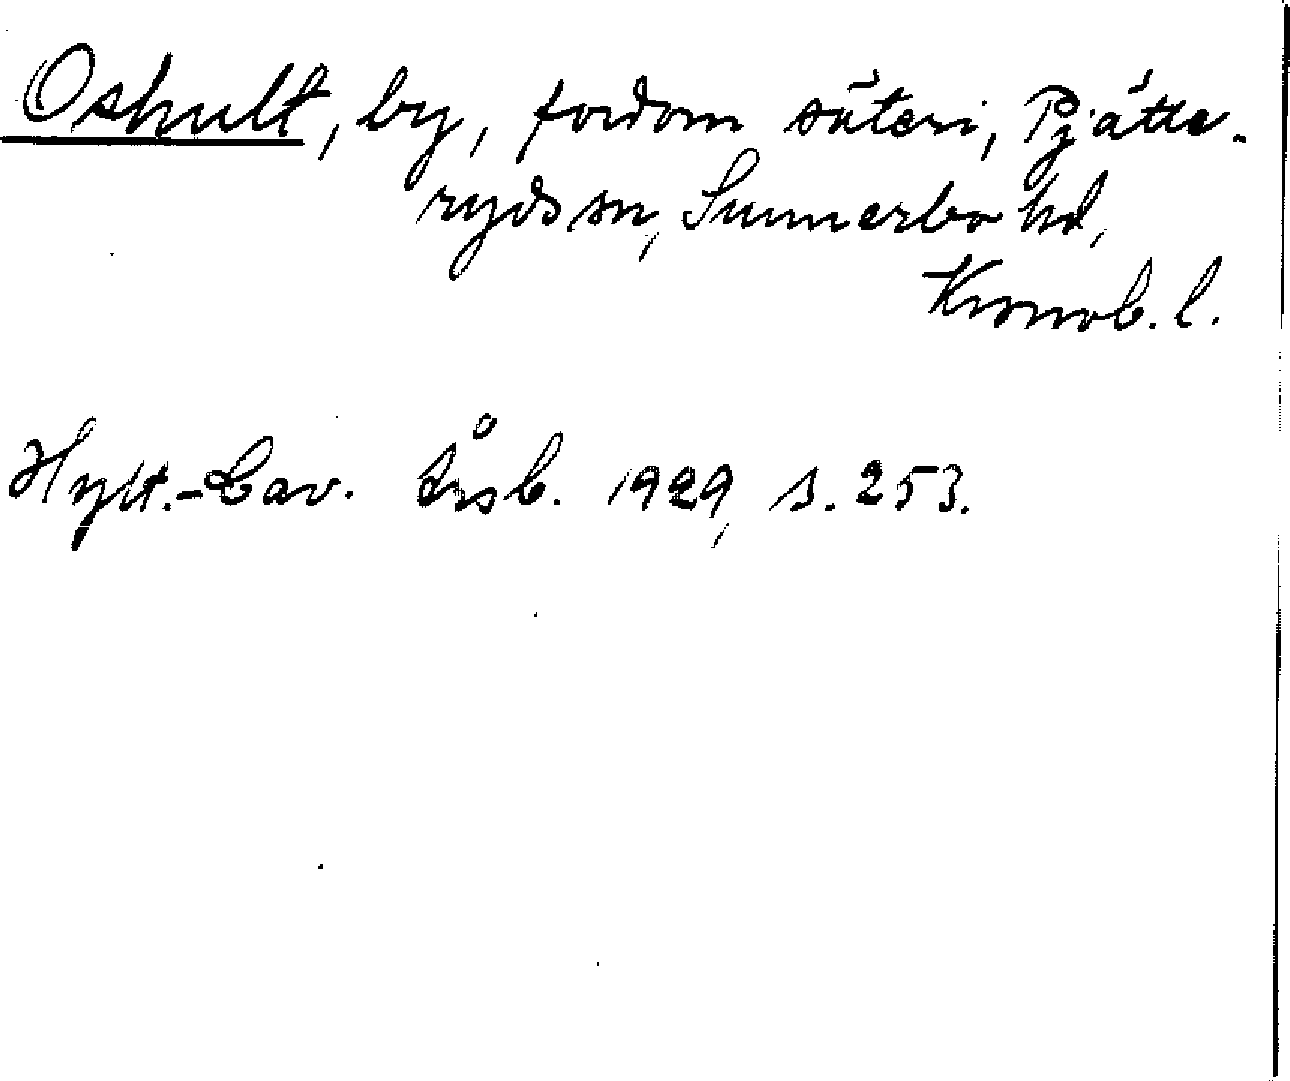 Oshult, by, fordom säteri, Pjätte-
ryds sn, Sunnerbo hd,
Kronob. l.
Hylt.-Cav. årsb. 1929, s. 253.